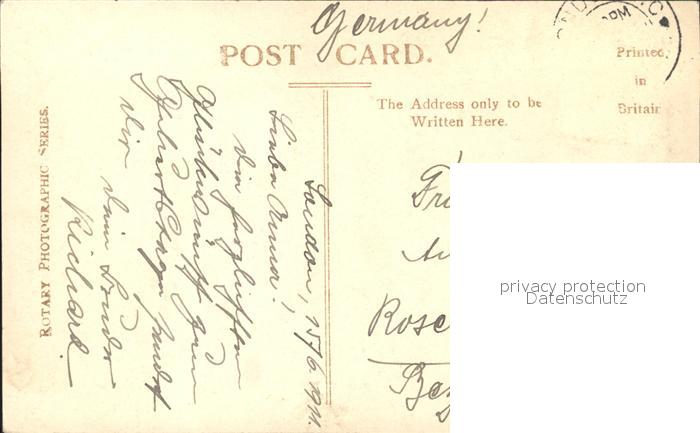 Germany!
POST CARD.
Printed
in
Britain
The Address only to be
Written Here.
ROTARY PHOTOGRAPHIC SERIES.
London, 15/6 1911.
Liebe Anna!
Die herzlichsten
Glückwünsche zum
Geburtstage sendet
Dir Dein Bruder
Richard.
Rose
privacy protection
Datenschutz